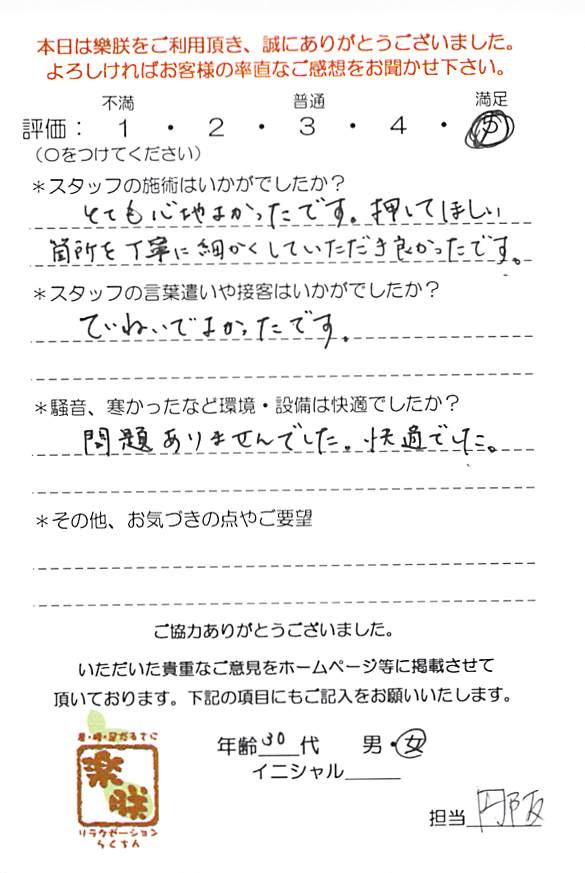 本日は樂朕をご利用頂き、誠にありがとうございました。
よろしければお客様の率直なご感想をお聞かせ下さい。
不満 普通 満足
評価: 1 ・ 2 ・ 3 ・ 4 ・ 5
(○をつけてください)
*スタッフの施術はいかがでしたか?
とても心地よかったです。押してほしい
箇所を丁寧に細かくしていただき良かったです。
*スタッフの言葉遣いや接客はいかがでしたか?
ていねいでよかったです。
*騒音、寒かったなど環境・設備は快適でしたか?
問題ありませんでした。快適でした。
*その他、お気づきの点やご要望
ご協力ありがとうございました。
いただいた貴重なご意見をホームページ等に掲載させて
頂いております。下記の項目にもご記入をお願いいたします。
年齢30代 男・女
イニシャル
樂朕
リラクゼーション
らくちん
担当